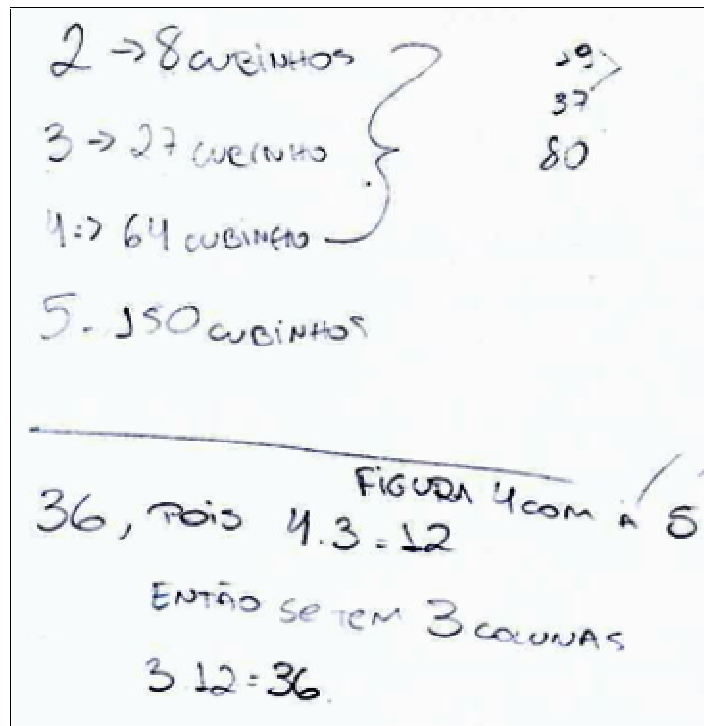 2 → 8 CUBINHOS
3 → 27 CUBINHO
4 → 64 CUBINHO
5 - 150 CUBINHOS
19
37
80
FIGURA 4 COM A 5
36, POIS 4.3 = 12
ENTÃO SE TEM 3 COLUNAS
3.12 = 36.